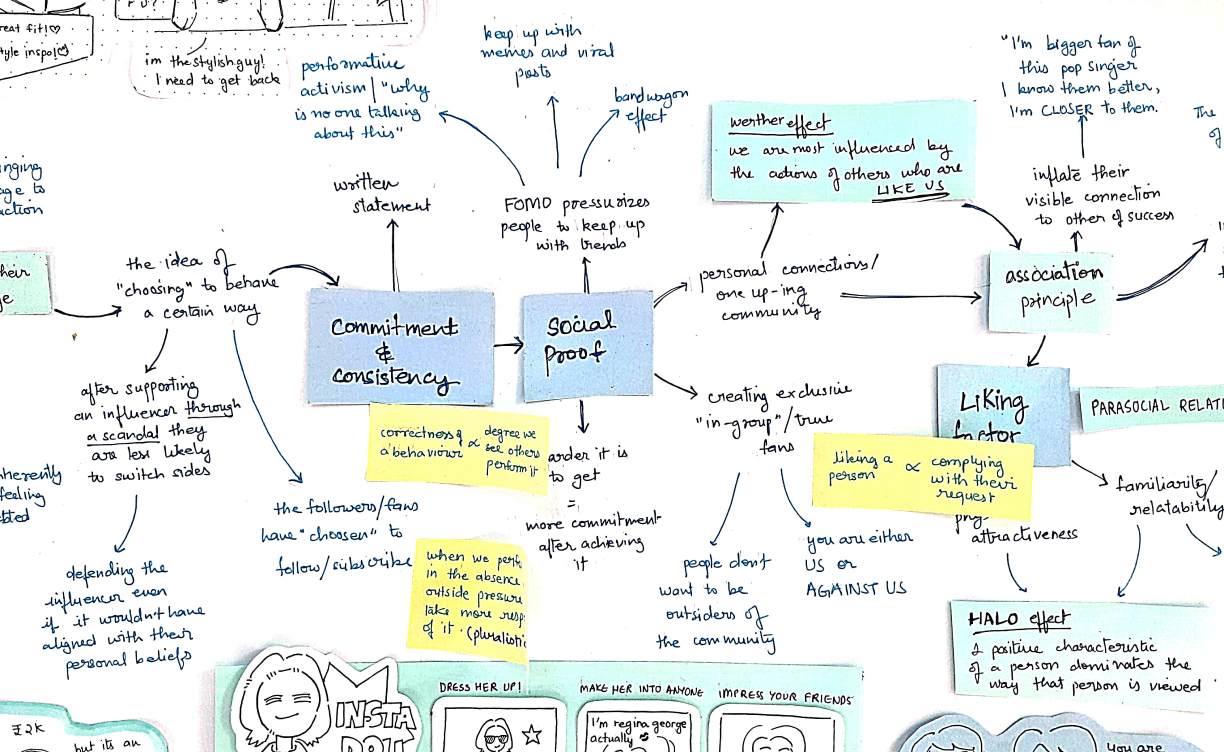 reat fit!♡
tyle inspo!♡
im the stylish guy!
I need to get back
performative
activism / "why
is no one talking
about this"
keep up with
memes and viral
posts
bandwagon
effect
"I'm bigger fan of
this pop singer
I know them better,
I'm CLOSER to them.
The
of
werther effect
we are most influenced by
the actions of others who are
LIKE US
inging
age to
action
written
statement
FOMO pressurizes
people to keep up
with trends
inflate their
visible connection
to other of success
heir
ge
the idea of
"choosing" to behave
a certain way
Commitment
&
consistency
social
proof
personal connections/
one up-ing
community
association
principle
after supporting
an influencer through
a scandal they
are less likely
to switch sides
correctness of ∝ degree we
a behaviour see others
perform it
arder it is
to get
=
more commitment
after achieving
it
creating exclusive
"in-group"/true
fans
Liking
factor
PARASOCIAL RELATI
liking a ∝ complying
person with their
request
attractiveness
familiarity/
relatability
nherently
feeling
bted
the followers/fans
have "choosen" to
follow/subscribe
when we perf
in the absence
outside pressure
take more resp
of it. (pluralisti
people don't
want to be
outsiders of
the community
you are either
US or
AGAINST US
defending the
influencer even
if it wouldn't have
aligned with their
personal beliefs
HALO effect
1 positive characteristic
of a person dominates the
way that person is viewed
DRESS HER UP!
MAKE HER INTO ANYONE
IMPRESS YOUR FRIENDS
INSTA
DOLL
I'm regina george
actually
₹2K
but its an
you are